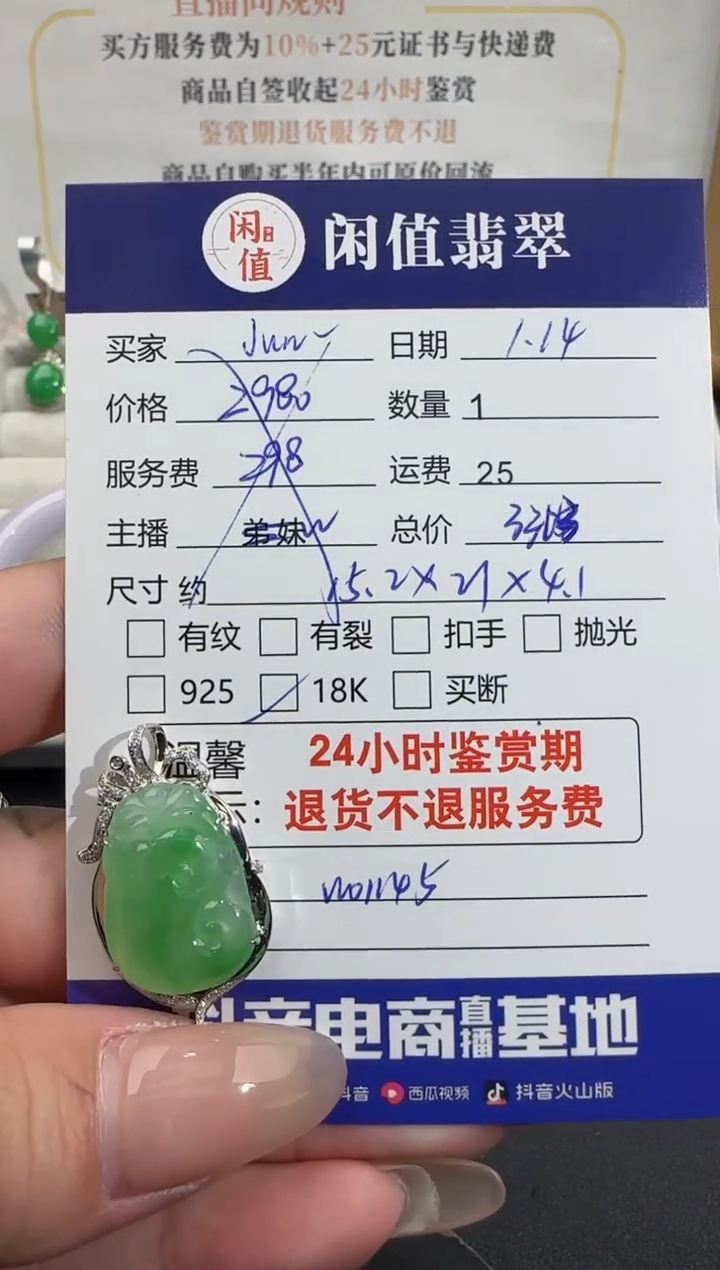 直播间规则
买方服务费为10%+25元证书与快递费
商品自签收起24小时鉴赏
鉴赏期退货服务费不退
商品自购买半年内可原价回流
闲值
闲值翡翠
买家 Jun 日期 1.14
价格 2980 数量 1
服务费 298 运费 25
主播 弟妹 总价
尺寸 约 15.2×21×4.1
有纹 有裂 扣手 抛光
925 18K 买断
温馨 24小时鉴赏期
示： 退货不退服务费
抖音电商直播基地
抖音 西瓜视频 抖音火山版